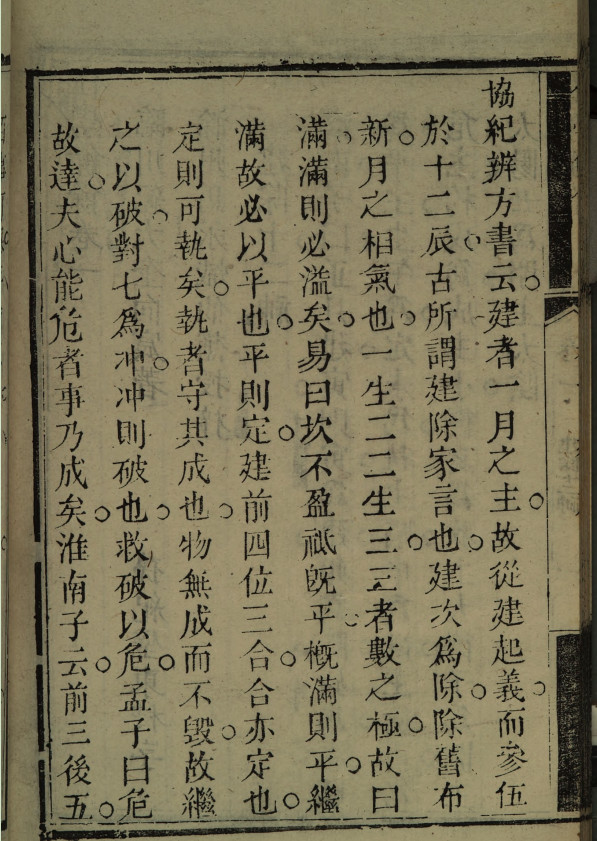 協紀辨方書云○建者一月之主○故從建起義○而參伍
於十二辰○古所謂建除家言也○建次爲除○除舊布
新○月之相氣也○一生二二生三○三者數之極○故曰
滿○滿則必溢矣○易曰坎不盈祗旣平○槪滿則平○繼
滿故必以平也○平則定○建前四位三合○合亦定也○
定則可執矣○執者守其成也○物無成而不毀○故繼
之以破○對七爲冲○冲則破也○救破以危○孟子曰危
故達○夫心能危者事乃成矣○淮南子云○前三後五○